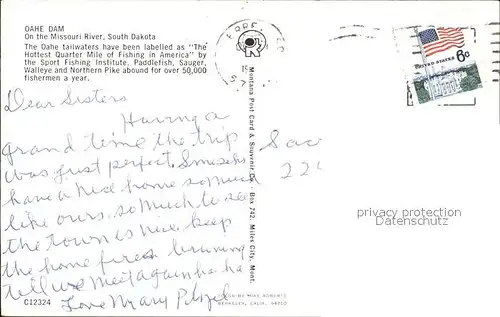 OAHE DAM
On the Missouri River, South Dakota
The Oahe tailwaters have been labelled as "The
Hottest Quarter Mile of Fishing in America" by
the Sport Fishing Institute. Paddlefish, Sauger,
Walleye and Northern Pike abound for over 50,000
fishermen a year.
UNITED STATES
6c
Dear Sisters
Having a
grand time the trip
was just perfect
have a nice home so much
like ours. so much to see
the town is nice. keep
the home fires burning
till we meet again ha ha
Love Mary
C12324
Montana Post Card & Souvenir Co. - Box 742, Miles City, Mont.
DESIGN BY MIKE ROBERTS
BERKELEY, CALIF. 94710
Sac
22
privacy protection
Datenschutz